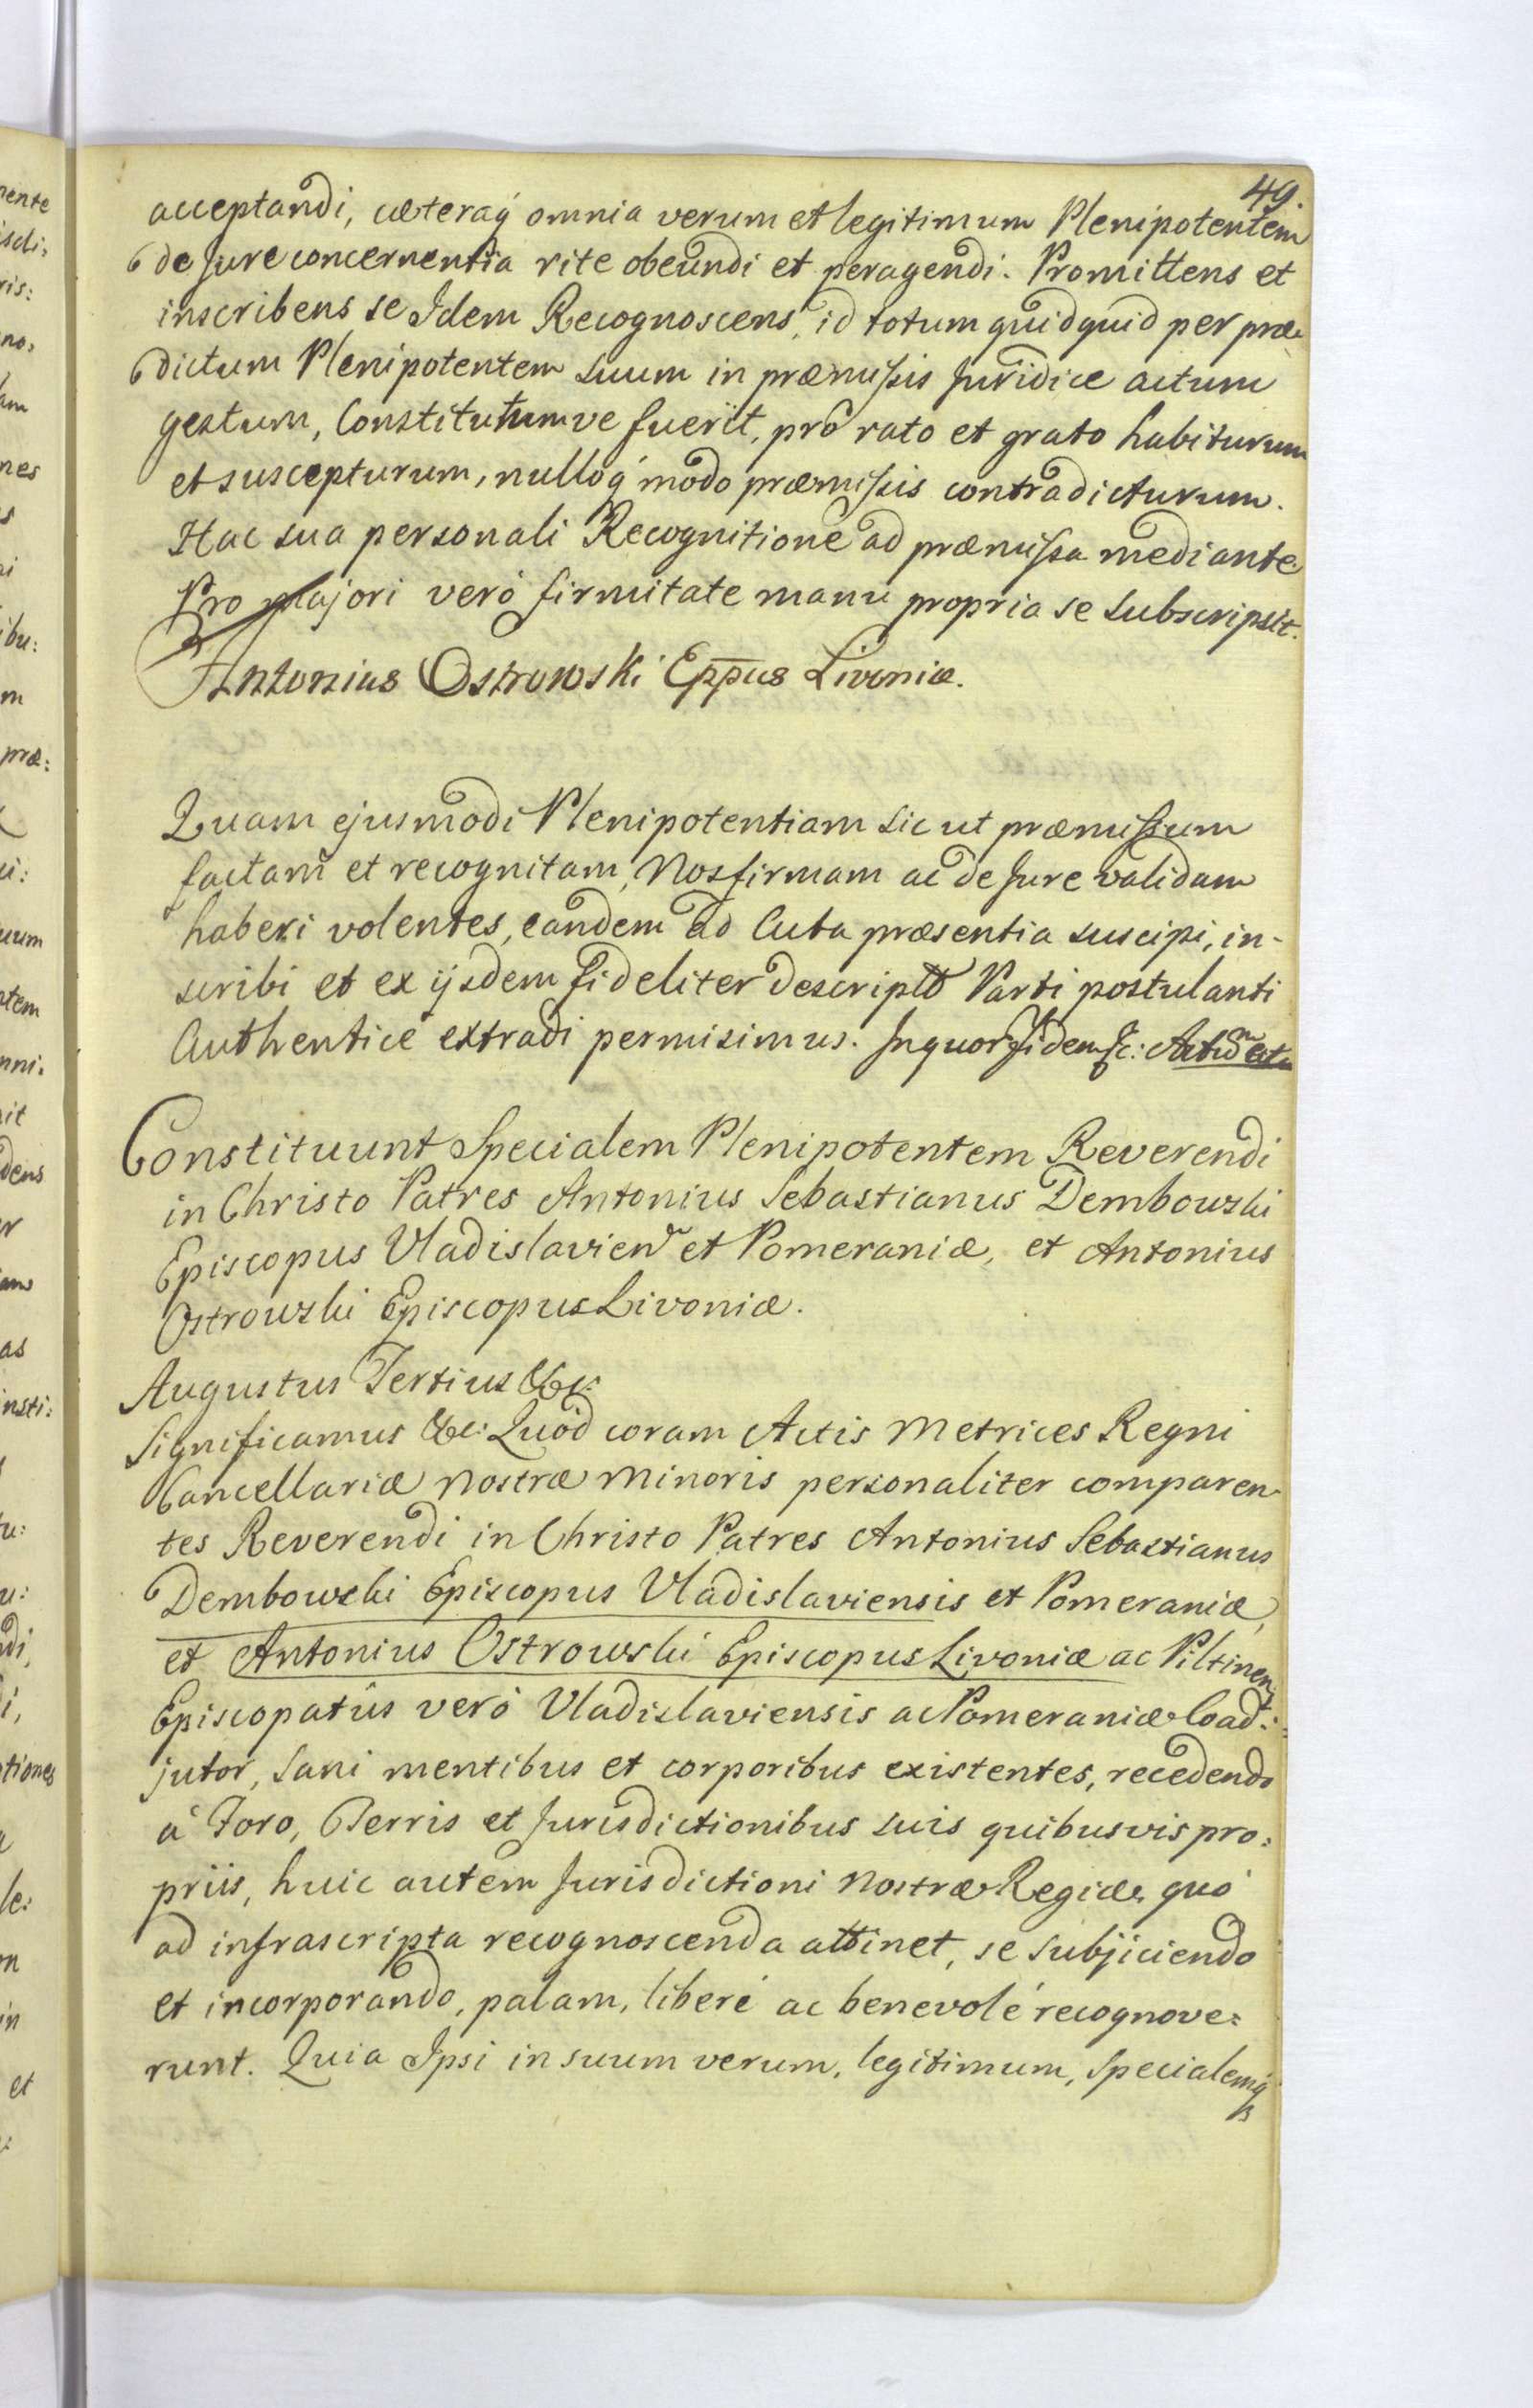 49.
acceptandi, cæteraq́ omnia verum et legitimum Plenipotentem
de Jure concernentia rite obeundi et peragendi. Promittens et
inscribens se Idem Recognoscens, id totum quidquid per præ
dictum Plenipotentem suum in præmissis Juridice actum
gestum, Constitutumve fuerit, pro rato et grato habiturum
et suscepturum, nulloq́ modo præmissis contradicturum.
Hac sua personali Recognitione ad præmissa mediante
Pro majori verò firmitate manu propria se subscripsit.
Antonius Ostrowski Eppus Livoniæ.
Quam ejusmodi Plenipotentiam sic ut præmissum
factam et recognitam, Nos firmam ac de Jure validam
haberi volentes, eandem ad Acta præsentia suscipi, in-
scribi et ex ijsdem fideliter descriptã Parti postulanti
Authenticè extradi permisimus. In quor. fidem &c: Actum ut
Constituunt Specialem Plenipotentem Reverendi
in Christo Patres Antonius Sebastianus Dembowski
Episcopus Vladislavien et Pomeraniæ, et Antonius
Ostrowski Episcopus Livoniæ.
Augustus Tertius &c:
Significamus &c: Quòd coram Actis Metrices Regni
Cancellariæ Nostræ Minoris personaliter comparen-
tes Reverendi in Christo Patres Antonius Sebastianus
Dembowski Episcopus Vladislaviensis et Pomeraniæ,
et Antonius Ostrowski Episcopus Livoniæ ac Piltinen
Episcopatûs verò Vladislaviensis ac Pomeraniæ Coad:
jutor, sani mentibus et corporibus existentes, recedendo
à Foro, Terris et Jurisdictionibus suis quibusvis pro:
priis, huic autem Jurisdictioni Nostræ Regiæ, quò
ad infrascripta recognoscenda attinet, se subjiciendo
et incorporando, palam, liberè ac benevolè recognove:
runt. Quia Ipsi in suum verum, legitimum, Specialemq́